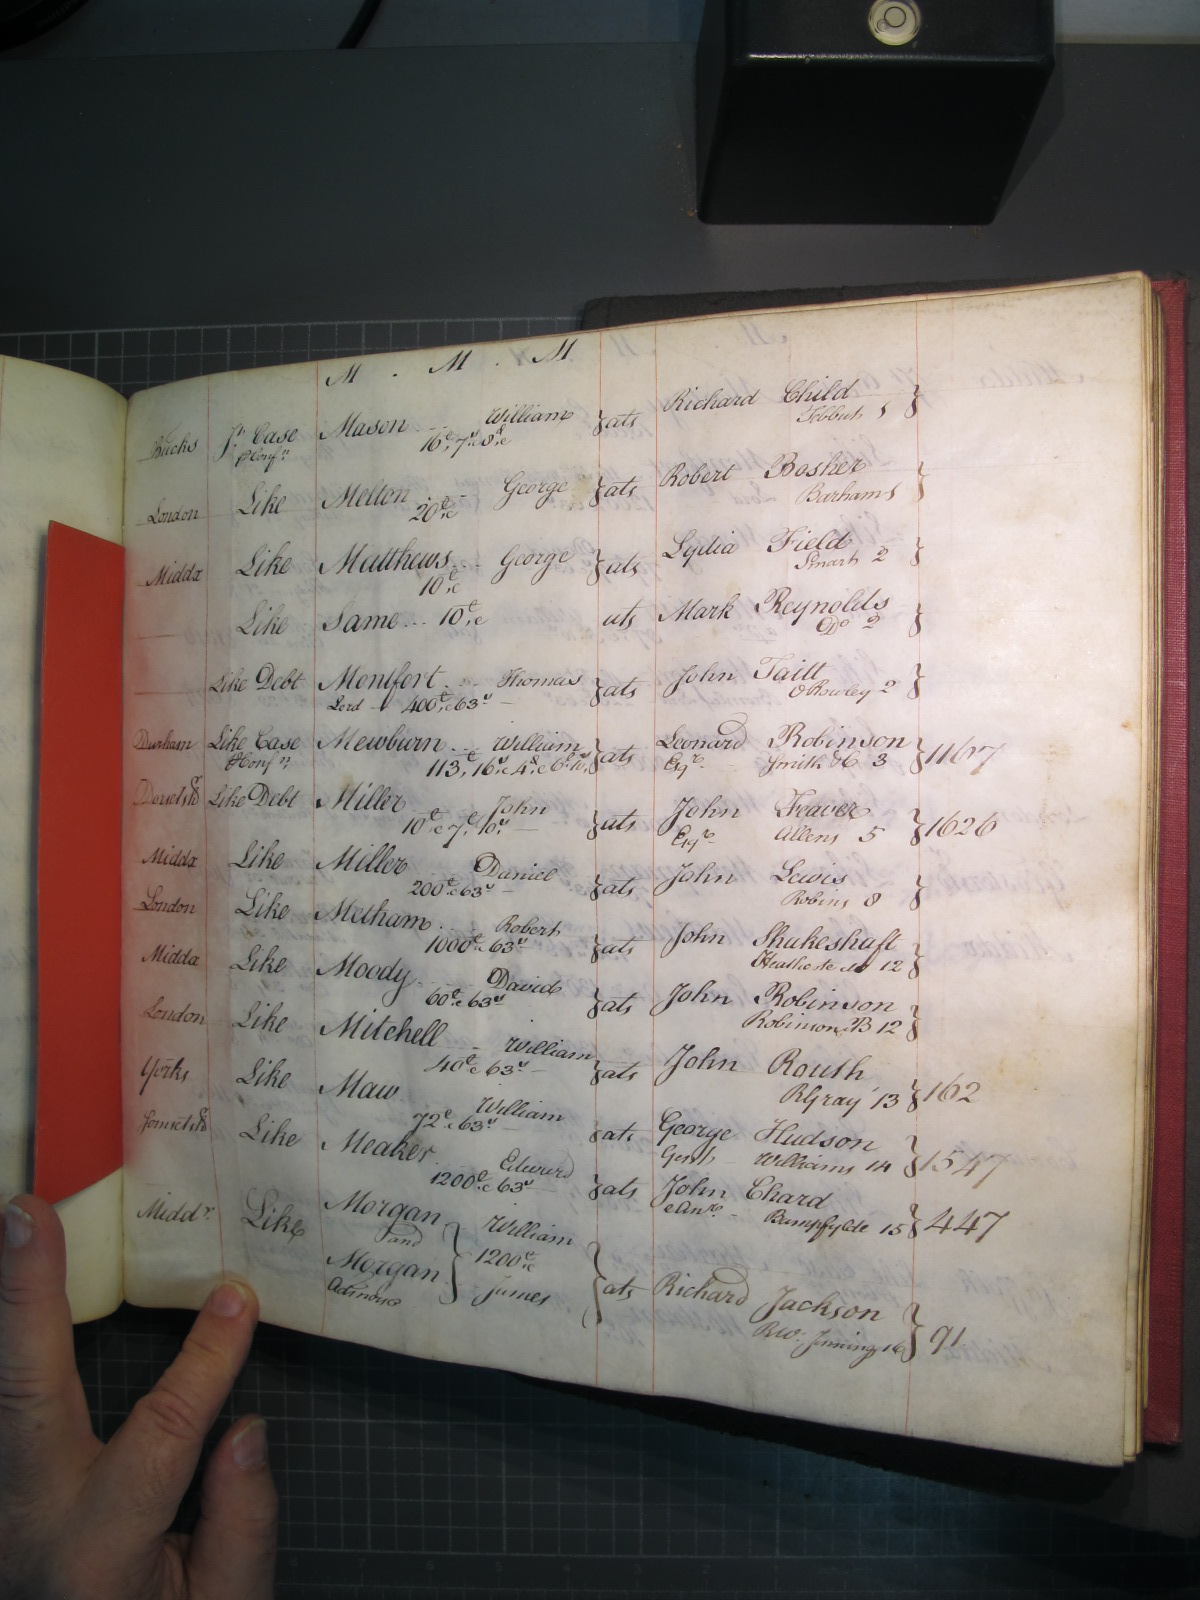 M . M . M
Bucks Jt Case Mason William } ats Richard Child }
p Confn 16£, 7s & 8d & Tebbutt 1
London Like Melton George } ats Robert Bosher }
20£ & Burham 1
Middx Like Matthews George } ats Lydia Field }
10£ & Smart 2
Like Same 10£ & ats Mark Reynolds }
Do 2
Like Debt Montfort Thomas } ats John Taitt }
Lord 400£ & 63s Rowley 2
Durham Like Case Mewburn William } ats Leonard Robinson } 1167
p Confn 113, 16s & 4d & Esqre Smith 3
Dorsetsh Like Debt Miller John } ats John Feaver } 1626
10£ & 7£, 10s Esqre Allens 5
Middx Like Miller Daniel } ats John Lewis }
200£ & 63s Robins 8
London Like Metham Robert } ats John Shakeshaft }
1000£ & 63s Heathcote 12
Middx Like Moody David } ats John Robinson }
60£ & 63s Robinson B 12
London Like Mitchell William } ats John Routh } 162
40£ & 63s RGray 13
Yorks Like Maw William } ats George Hudson } 1547
72£ & 63s Gent Williams 14
Somsetsh Like Meaker Edward } ats John Chard } 447
1200£ & 63s Bampfylde 15
Middx Like Morgan William
and } 1200£ & } ats Richard Jackson } 91
Morgan James RW. Jennings 16
Admors